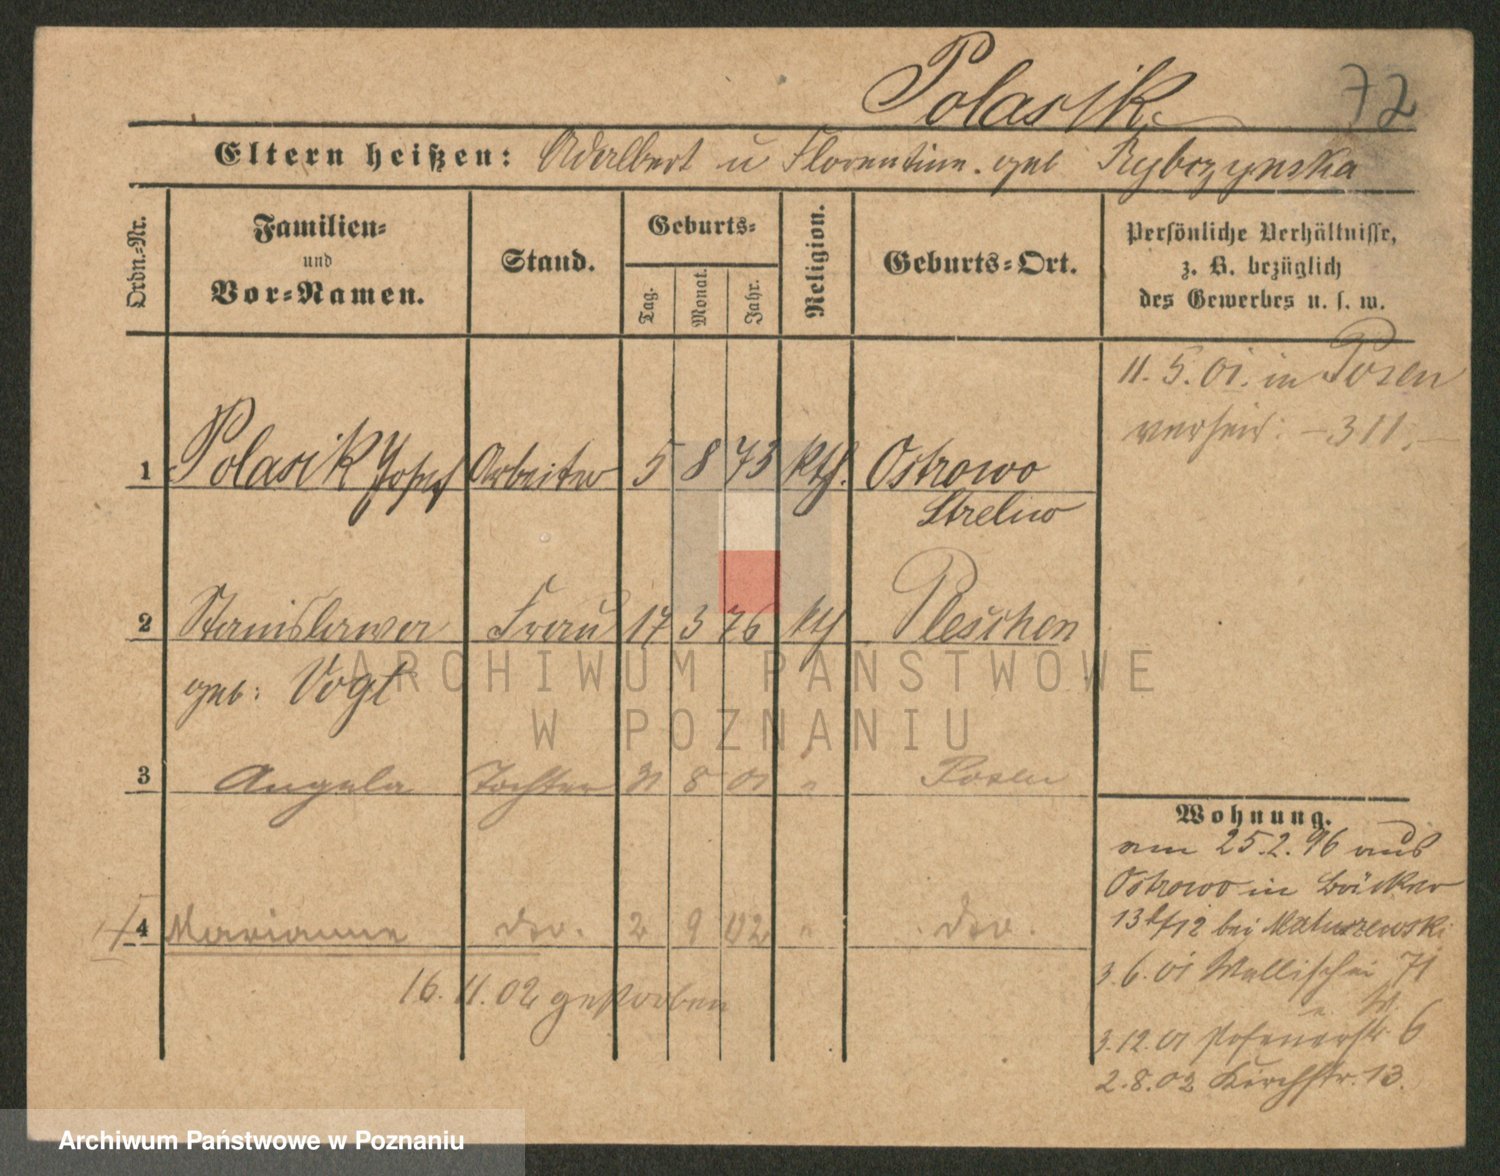 Polasik
72
Eltern heißen: Adalbert u Florentine geb Rybczynska
Ordn.-Nr.
Familien-
und
Vor-Namen.
Stand.
Geburts-
Tag.
Monat.
Jahr.
Religion.
Geburts-Ort.
Persönliche Verhältnisse,
z. B. bezüglich
des Gewerbes u. s. w.
11. 5. 01. in Posen
verheir. - 311. -
1 Polasik Josef Arbeiter 5 8 73 kth. Ostrowo
Strelno
2 Stanislawa Frau 17 3 76 kth Pleschen
geb: Vogt
3 Angela Tochter 31 8 01 " Posen
4 Marianne dto. 2 9 02 " dto.
16. 11. 02 gestorben
Wohnung.
am 25.2.96 aus
Ostrowo in Bäcker
13b/12 bei Matuszewski
3.6.01 Wallischei 71
W.
3.12.01 Posenerstr 6
2.8.02 Kirchstr. 13.
ARCHIWUM PAŃSTWOWE
W POZNANIU
Archiwum Państwowe w Poznaniu